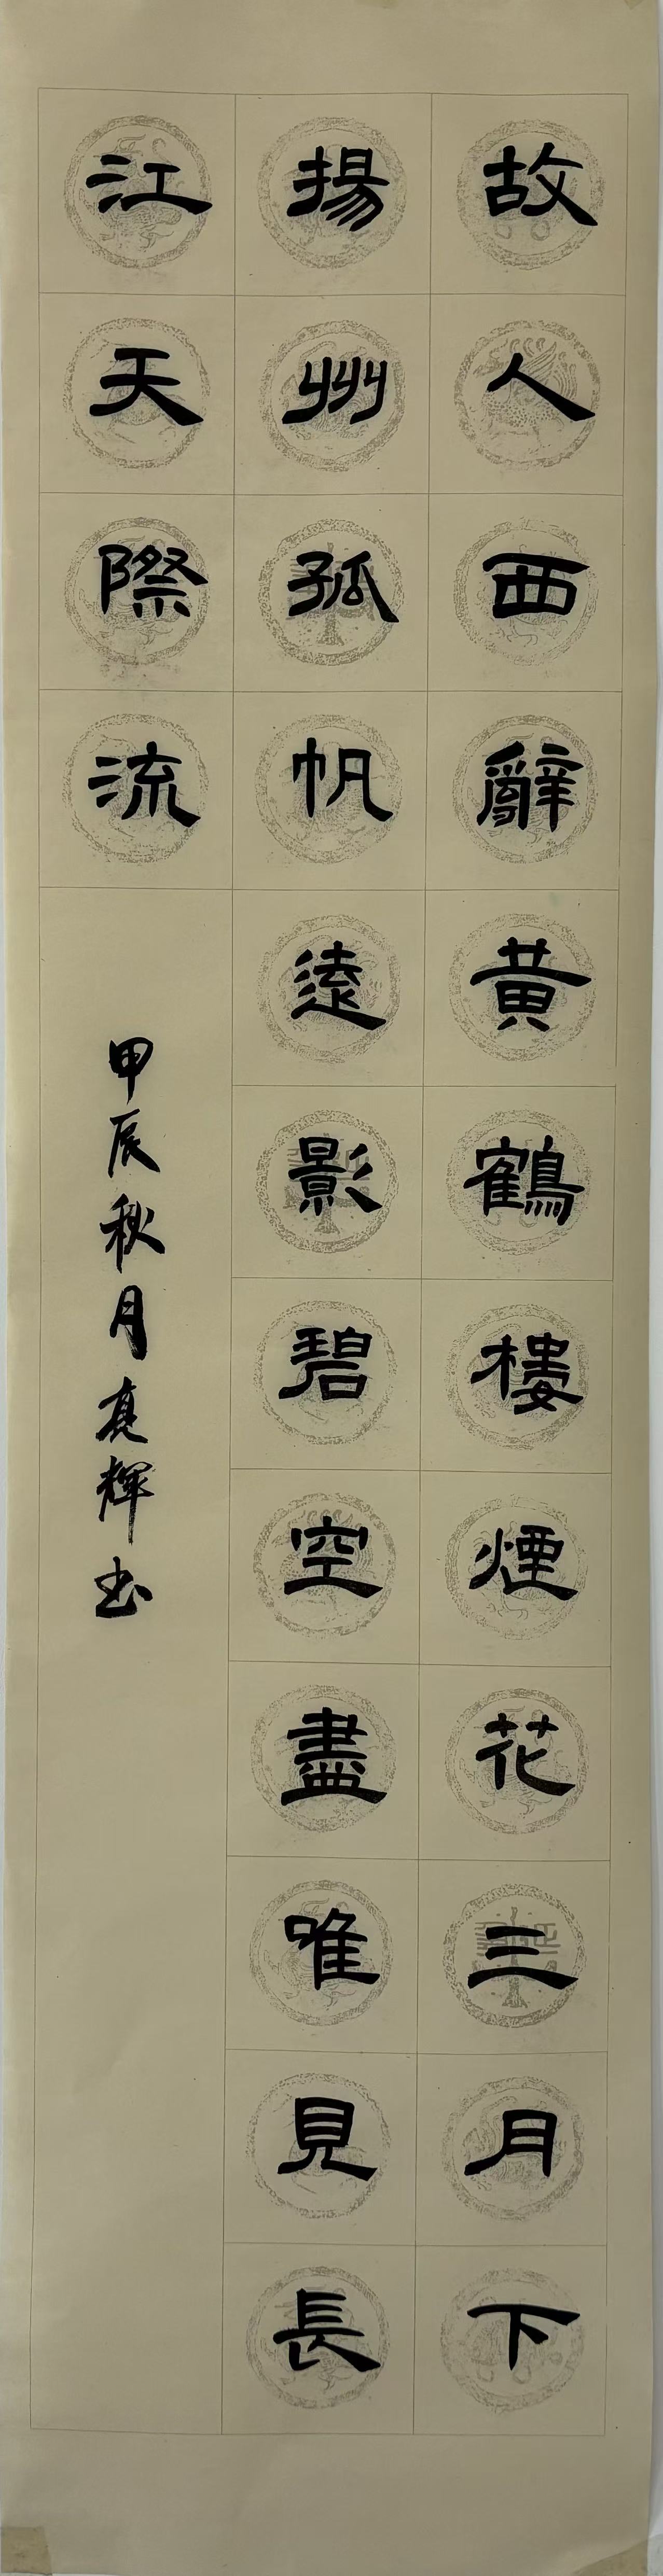 故人西辭黃鶴樓煙花三月下
揚州孤帆遠影碧空盡唯見長
江天際流
甲辰秋月亮輝书